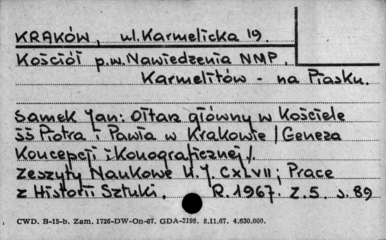 KRAKÓW, ul. Karmelicka 19.
Kościół p.w. Nawiedzenia NMP.
Karmelitów - na Piasku.
Samek Jan: Ołtarz główny w Kościele
śś Piotra i Pawła w Krakowie /Geneza
Koncepcji ikonograficznej/.
Zeszyty Naukowe U.J. CXLVII; Prace
z Historii Sztuki. R. 1967. Z.5. s. 89
CWD. B-15-b. Zam. 1726-DW-On-67. GDA-3198. 8.11.67. 4.630.000.